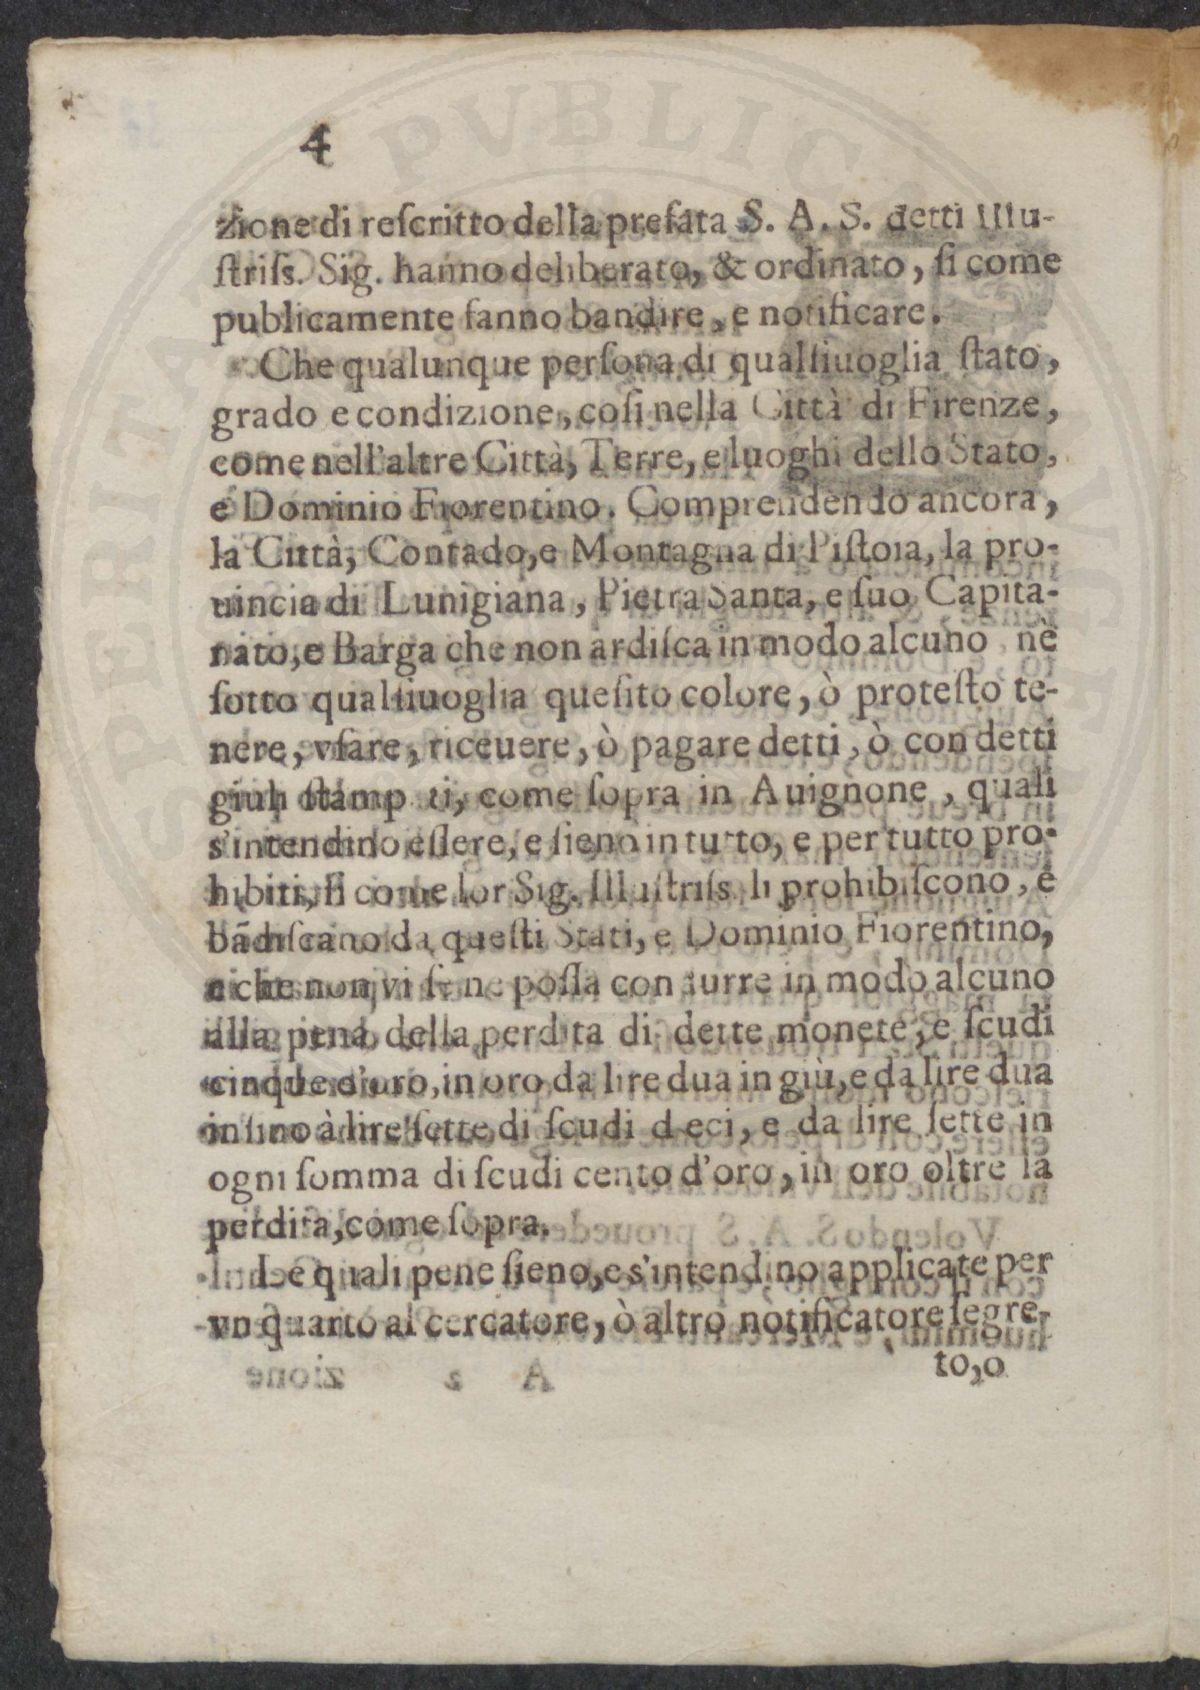 4
zione di reſcritto della prefata S. A. S. detti Illu-
ſtriſs. Sig. hanno deliberato, & ordinato, ſi come
publicamente fanno bandire, e notificare.
Che qualunque perſona di qualſiuoglia ſtato,
grado e condizione, coſi nella Città di Firenze,
come nell'altre Città, Terre, e luoghi dello Stato,
e Dominio Fiorentino. Comprendendo ancora,
la Città, Contado, e Montagna di Piſtoia, la pro-
uincia di Lunigiana, Pietra Santa, e ſuo Capita-
nato, e Barga che non ardiſca in modo alcuno, nè
ſotto qualſiuoglia queſito colore, ò proteſto te-
nere, vſare, riceuere, ò pagare detti, ò con detti
giulii ſtampati, come ſopra in Auignone, quali
s'intendino eſſere, e ſieno in tutto, e per tutto pro-
hibiti, ſi come lor Sig. Illuſtriſs. li prohibiſcono, e
bādiſcano da queſti Stati, e Dominio Fiorentino,
e che non vi ſe ne poſſa condurre in modo alcuno
alla pena della perdita di dette monete, e ſcudi
cinque d'oro, in oro da lire dua in giù, e da lire dua
inſino à lire ſette di ſcudi dieci, e da lire ſette in
ogni ſomma di ſcudi cento d'oro, in oro oltre la
perdita, come ſopra.
Le quali pene ſieno, e s'intendino applicate per
vn quarto al cercatore, ò altro notificatore ſegre-
to, o